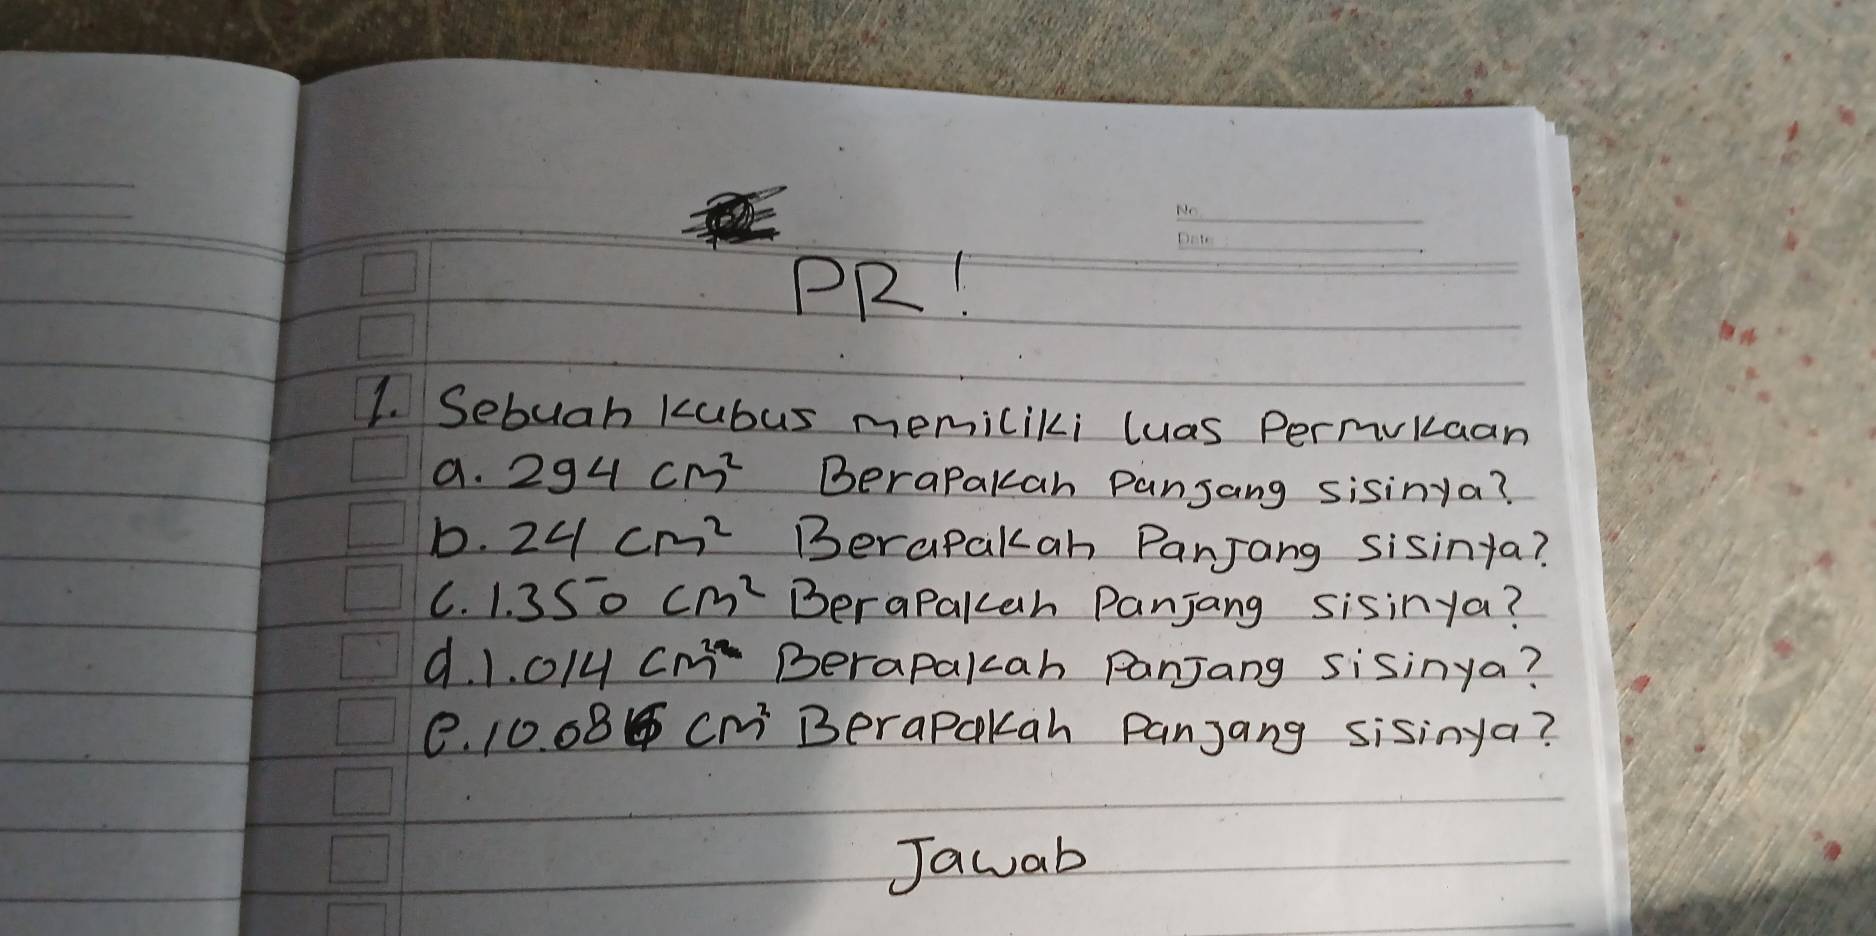 No
Date
PR!
1. Sebuah kubus memiliki luas Permukaan
a. 294 cm² Berapakah panjang sisinya?
b. 24 cm² Berapakah Panjang sisinya?
c. 1.350 cm² Berapakah Panjang sisinya?
d. 1.014 cm² Berapakah Panjang sisinya?
e. cm² Berapakah Panjang sisinya?
Jawab